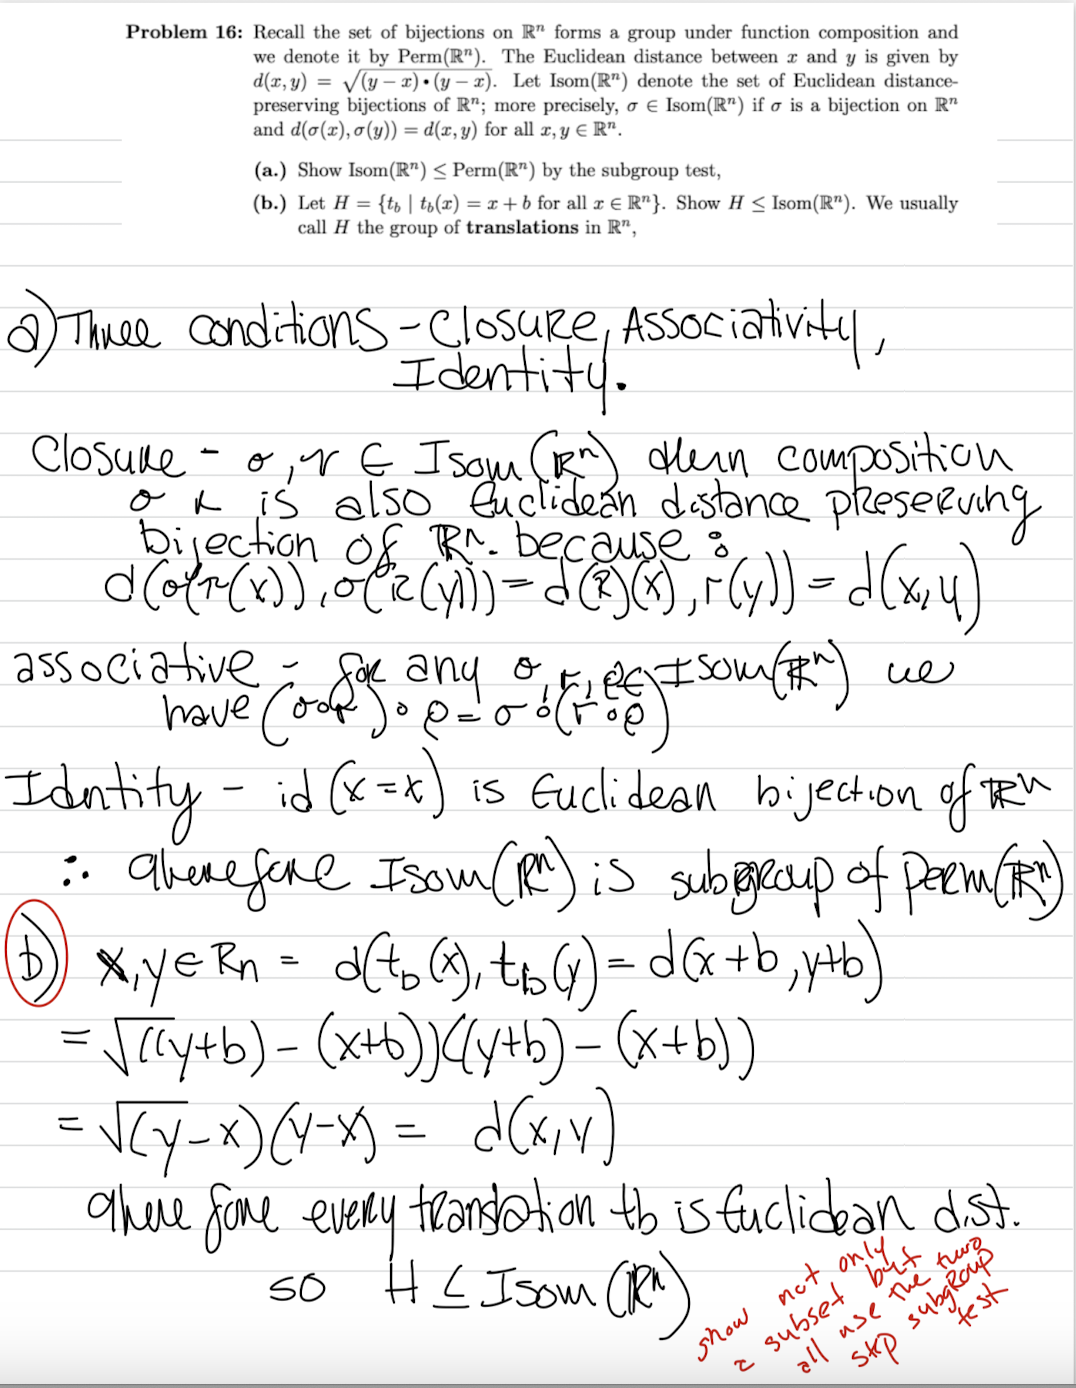 Problem 16: Recall the set of bijections on ℝⁿ forms a group under function composition and
we denote it by Perm(ℝⁿ). The Euclidean distance between x and y is given by
d(x, y) = √(y − x)•(y − x). Let Isom(ℝⁿ) denote the set of Euclidean distance-
preserving bijections of ℝⁿ; more precisely, σ ∈ Isom(ℝⁿ) if σ is a bijection on ℝⁿ
and d(σ(x), σ(y)) = d(x, y) for all x, y ∈ ℝⁿ.
(a.) Show Isom(ℝⁿ) ≤ Perm(ℝⁿ) by the subgroup test,
(b.) Let H = {t_b | t_b(x) = x + b for all x ∈ ℝⁿ}. Show H ≤ Isom(ℝⁿ). We usually
call H the group of translations in ℝⁿ,
a) Three conditions - Closure, Associativity,
Identity.
Closure - σ, r ∈ Isom(ℝⁿ) then composition
σ r is also Euclidean distance preserving
bijection of ℝⁿ. because:
d(σ(r(x)), σ(r(y))) = d(r)(x), r(y)) = d(x,y)
associative - for any σ, r, ρ ∈ Isom(ℝⁿ) we
have (σ∘r)∘ρ = σ∘(r∘ρ)
Identity - id (x=x) is Euclidean bijection of ℝⁿ
∴ therefore Isom(ℝⁿ) is subgroup of Perm(ℝⁿ)
b) x,y ∈ Rn = d(t_b(x), t_b(y) = d(x+b, y+b)
= √((y+b) - (x+b))((y+b) - (x+b))
= √(y-x)(y-x) = d(x,y)
therefore every translation tb is Euclidean dist.
so H ≤ Isom(ℝⁿ)
show not only
a subset but
all use the two
step subgroup
test